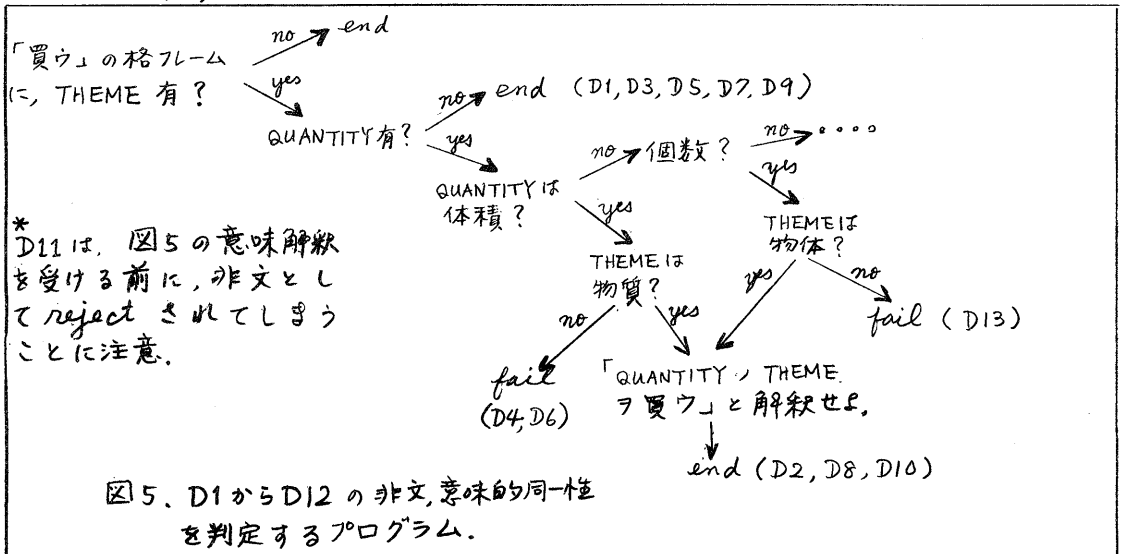 「買ウ」の格フレーム
に, THEME 有?
no
end
yes
QUANTITY有?
no
end (D1, D3, D5, D7, D9)
yes
QUANTITYは
体積?
no
個数?
no
・・・・
yes
yes
THEMEは
物質?
THEMEは
物体?
no
yes
yes
no
fail
(D4, D6)
fail (D13)
「QUANTITY ノ THEME
ヲ買ウ」と解釈せよ.
end (D2, D8, D10)
*
D11は, 図5の意味解釈
を受ける前に, 非文とし
て reject されてしまう
ことに注意.
図5. D1からD12の非文, 意味的同一性
を判定するプログラム.